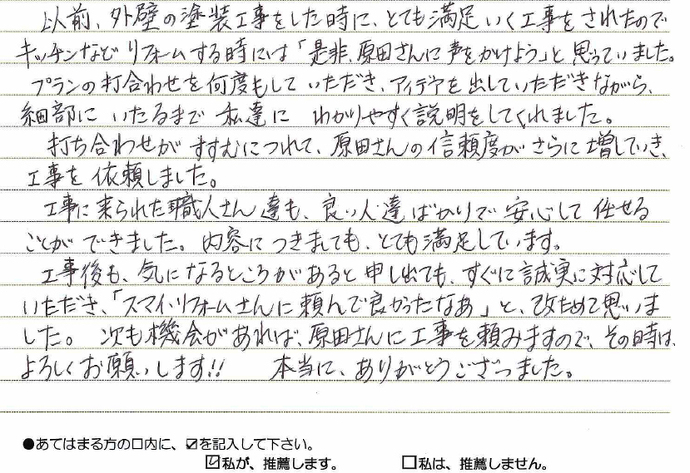 以前、外壁の塗装工事をした時に、とても満足いく工事をされたので
キッチンなどリフォームする時には「是非、原田さんに声をかけよう」と思っていました。
プランの打合わせを何度もしていただき、アイデアを出していただきながら、
細部にいたるまで私達にわかりやすく説明をしてくれました。
打ち合わせがすすむにつれて、原田さんの信頼度がさらに増していき、
工事を依頼しました。
工事に来られた職人さん達も、良い人達ばかりで安心して任せる
ことができました。内容につきましても、とても満足しています。
工事後も、気になるところがあると申し出ても、すぐに誠実に対応して
いただき、「スマイリフォームさんに頼んで良かったなあ」と、改ためて思いま
した。次も機会があれば、原田さんに工事を頼みますので、その時は、
よろしくお願いします!! 本当に、ありがとうございました。
●あてはまる方の口内に、☑を記入して下さい。
☑私が、推薦します。 □私は、推薦しません。